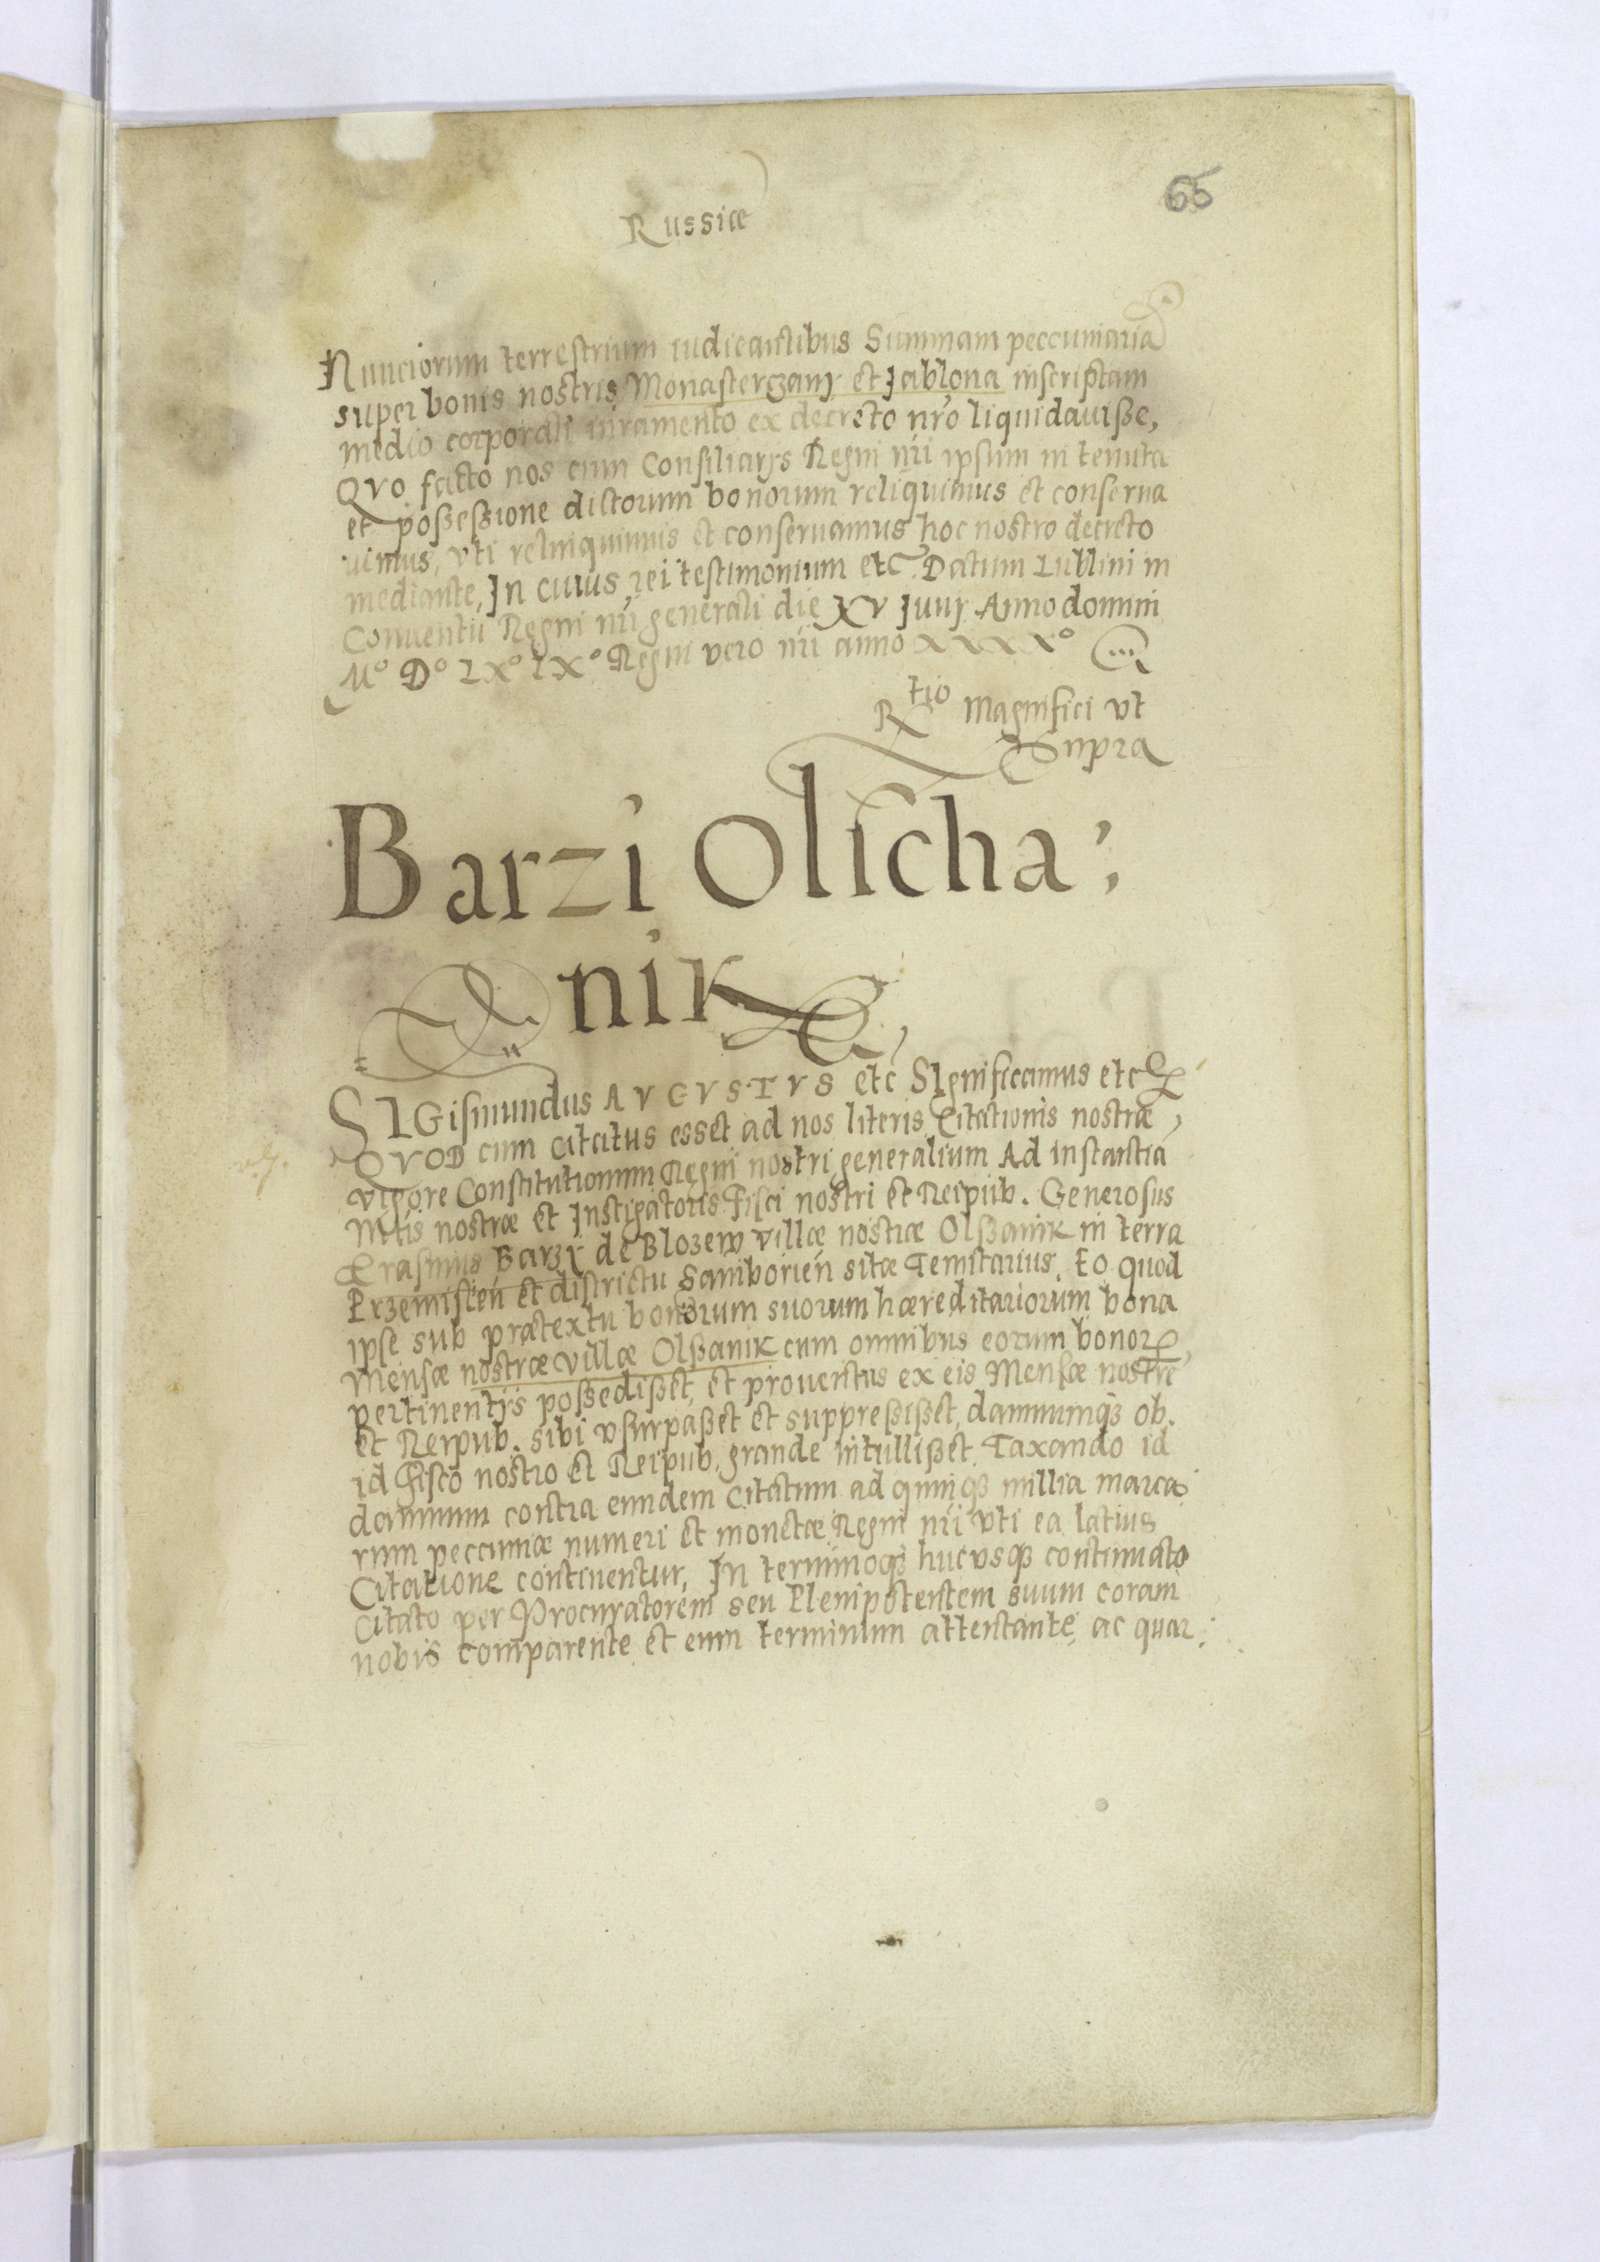 66
Russiæ
Nunciorum terrestrium iudicantibus Summam peccuniariã
super bonis nostris Monasterzany et Jablona inscriptam
medio corporali iuramento ex decreto nr̃o liquidavisse,
QVO facto nos cum Consiliarijs Regni nr̃i ipsum in tenuta
et possessione dictorum bonorum reliquimus et conserva
uimus, vti relinquimus et conseruamus hoc nostro decreto
mediante, In cuius rei testimonium etc. Datum Lublini in
Conuentu Regni nr̃i generali die XV Junij Anno domini
Mº Dº LXº IXº Regni vero nr̃i anno XXXXº
Rtio Magnifici vt
Supra
Barzi Olscha:
nik
SIGismundus AVGVSTVS etc SIgnificamus etc
QVOD cum citatus esset ad nos literis Citationis nostræ,
vigore Constitutionum Regni nostri generalium Ad instantiã
Mtis nostræ et Instigatoris Fisci nostri et Reipub. Generosus
Erasmus Barzy de Blozew villæ nostræ Olßanik in terra
Przemislen̄ et districtu Samborien̄ sitæ Tenutarius. Eo quod
ipse sub prætextu bonorum suorum hæreditariorum bona
Mensæ nostræ villæ Olßanik cum omnibus eorum bonorꝝ
pertinentijs poßedißet, et prouentus ex eis Mensæ nostrę
et Reipub. sibi vsurpaßet et suppreßißet, damnumqꝫ ob.
id Fisco nostro et Reipub. grande intullißet. Taxando id
damnum contra eundem Citatum ad quinqꝫ millia marca
rum peccuniæ numeri et monetæ Regni nr̃i vti ea latius
Citatione continentur, In terminoqꝫ hucusqꝫ continuato
citato per Procuratorem seu Plenipotentem suum coram
nobis comparente et eum terminum attentante, ac quar: